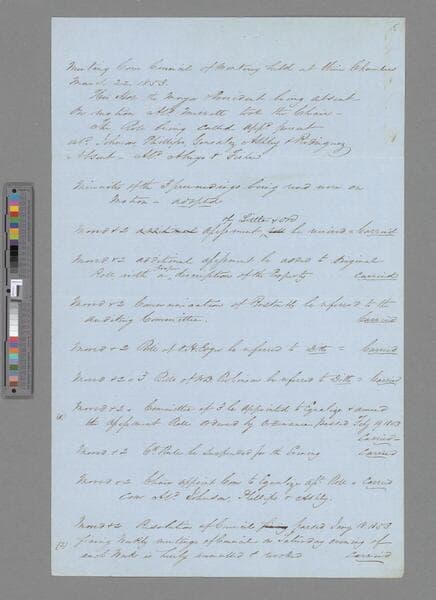 Meeting Com Council of Monterey held at their Chambers
March 22 1853.
His Hon the Mayor & President being absent
On motion Ald. Merritt took the Chair –
The Role being called app'd present
Ald. Johnson Phillips Gonzales Ashby & Rodriguez
Absent – Ald. &
Minutes of the proceedings being read were on
Motion – adopted
of Little & Ord
Moved & 2 Assessment be received – Carried
Moved & 2 additional assessment be added to original
Roll with descriptions of the Property Carried
Moved & 2 Communication of be referred to the
Auditing Committee. Carried
Moved & 2 Bill of be referred to Ditto = Carried
Moved & 2 & 3 Bill of Robinson be referred to Ditto – Carried
Moved & 2 – Committee of 3 be Appointed to Equalize & amend
(1) the Assessment Roll ordered by Ordinance Passed Feby 19 1853
Carried
Moved & 2 6th Rule be suspended for the Evening Carried
Moved & 2 Chair appoint Com to Equalize Ast. Roll – Carried
Com Ald. Johnson, Phillips & Ashby.
Moved & 2 Resolution of Council passed Jany 18 1853
(2) fixing Weekly meetings of Council on Saturday evening of
each Week is hereby annulled & revoked Carried